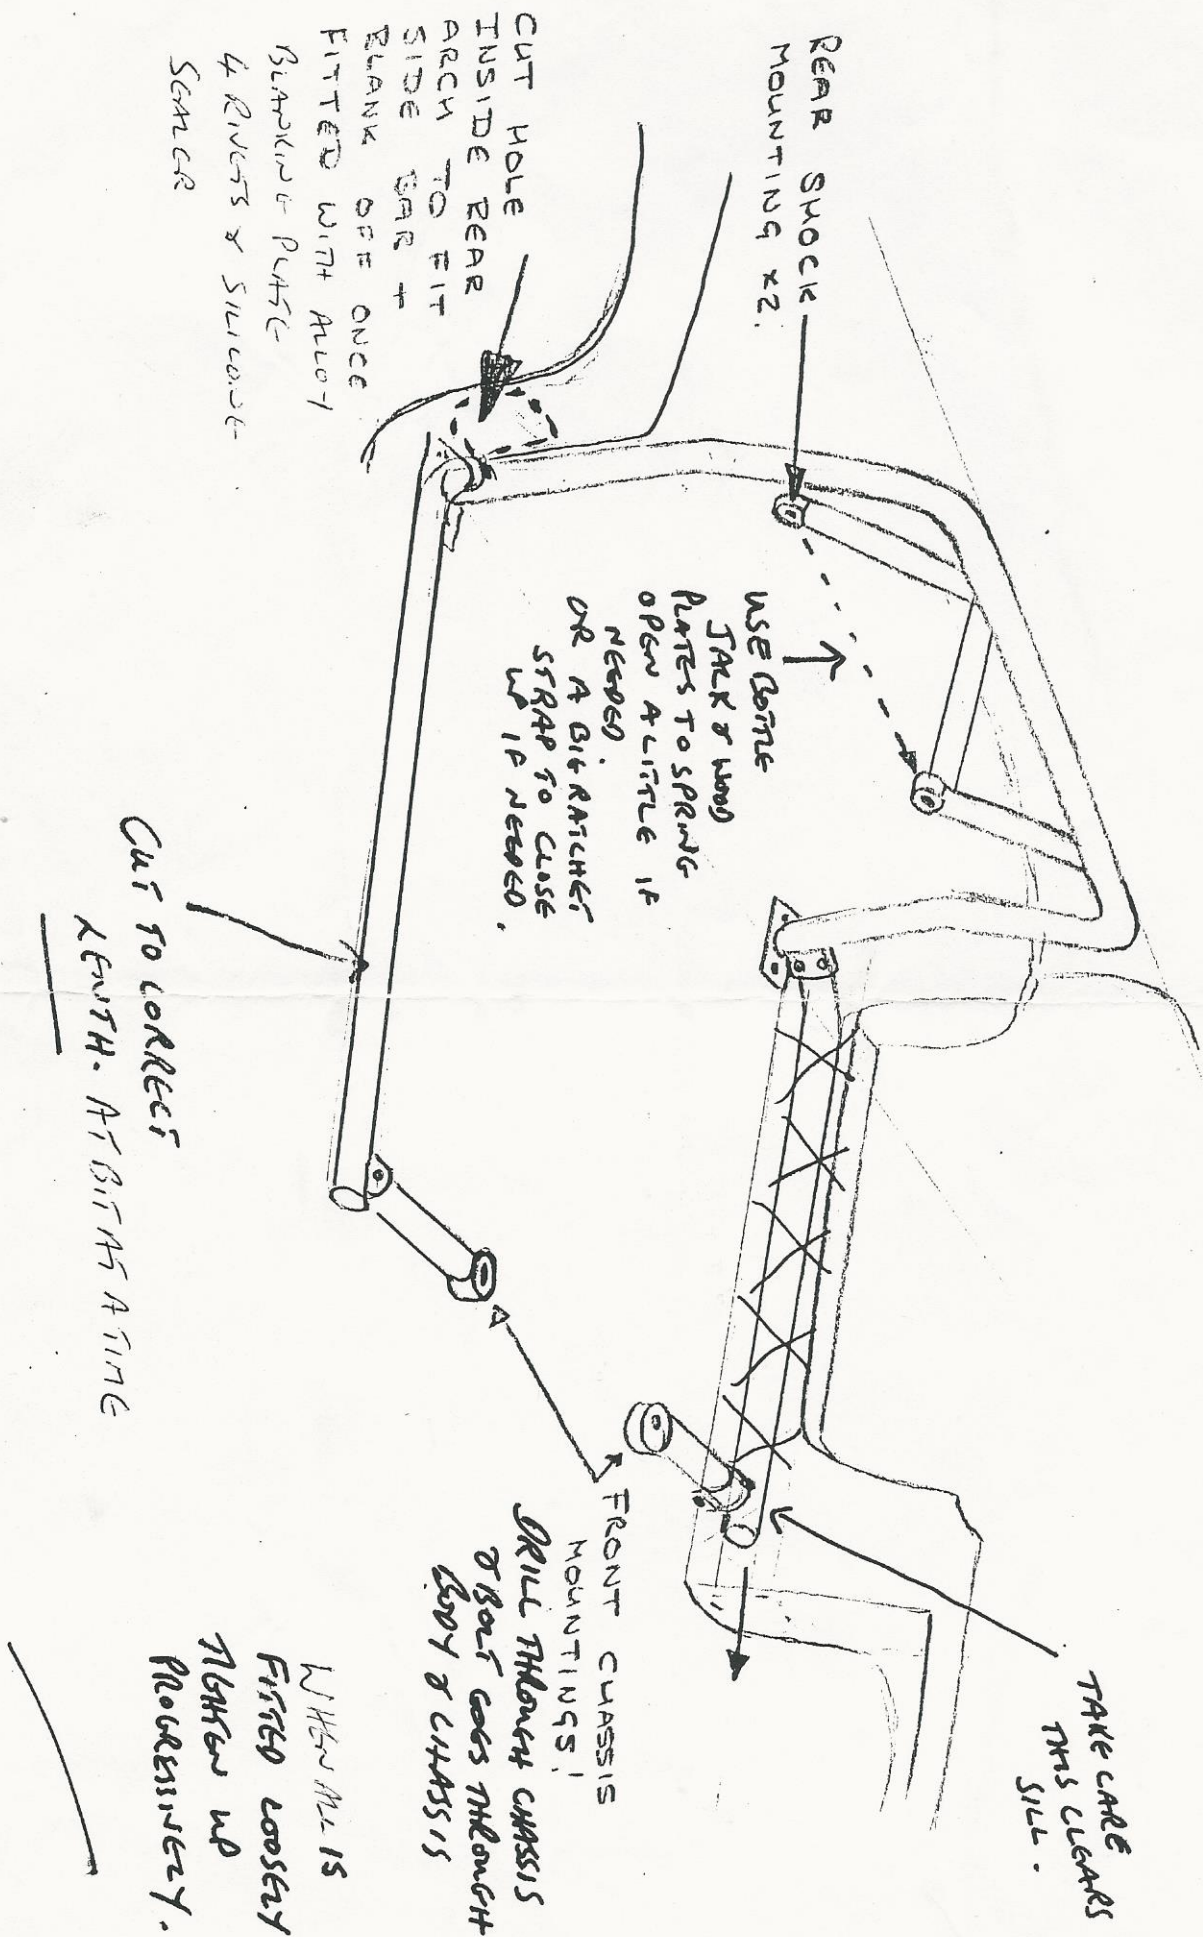 REAR SHOCK
MOUNTING x2.
CUT HOLE
INSIDE REAR
ARCH TO FIT
SIDE BAR +
BLANK OFF ONCE
FITTED WITH ALLOY
BLANKING PLATE
4 RIVETS & SILICONE
SEALER
USE BOTTLE
JACK & WOOD
PLATES TO SPRING
OPEN A LITTLE IF
NEEDED.
OR A BIG RATCHET
STRAP TO CLOSE
UP IF NEEDED.
CUT TO CORRECT
LENTH. AT BIT AT A TIME
TAKE CARE
THIS CLEARS
SILL.
FRONT CHASSIS
MOUNTINGS!
DRILL THROUGH CHASSIS
& BOLT GOES THROUGH
BODY & CHASSIS
WHEN ALL IS
FITTED LOOSELY
TIGHTEN UP
PROGRESSIVELY.